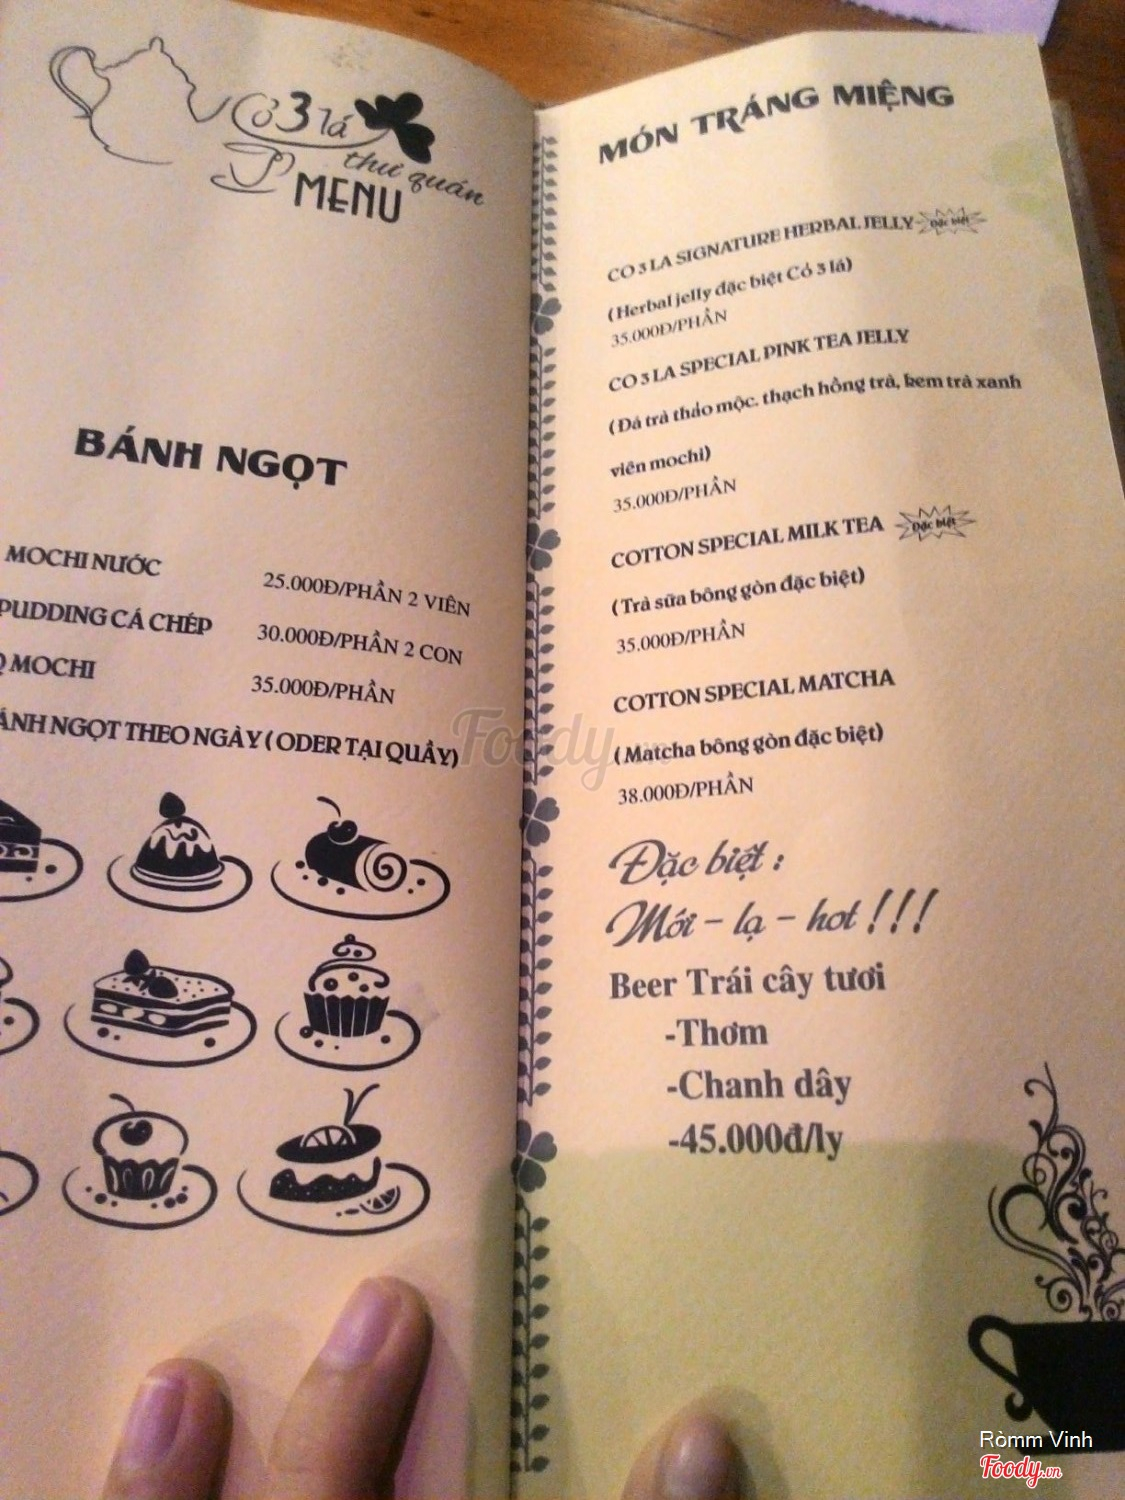 Cỏ 3 lá
thư quán
MENU
BÁNH NGỌT
MOCHI NƯỚC 25.000Đ/PHẦN 2 VIÊN
PUDDING CÁ CHÉP 30.000Đ/PHẦN 2 CON
MOCHI 35.000Đ/PHẦN
ÁNH NGỌT THEO NGÀY ( ODER TẠI QUẦY)
MÓN TRÁNG MIỆNG
CO 3 LA SIGNATURE HERBAL JELLY Đặc biệt
(Herbal jelly đặc biệt Cỏ 3 lá)
35.000Đ/PHẦN
CO 3 LA SPECIAL PINK TEA JELLY
(Đá trà thảo mộc. thạch hồng trà, kem trà xanh
viên mochi)
35.000Đ/PHẦN
COTTON SPECIAL MILK TEA Đặc biệt
(Trà sữa bông gòn đặc biệt)
35.000Đ/PHẦN
COTTON SPECIAL MATCHA
(Matcha bông gòn đặc biệt)
38.000Đ/PHẦN
Đặc biệt :
Mới - lạ - hot !!!
Beer Trái cây tươi
-Thơm
-Chanh dây
-45.000đ/ly
Foody.vn
Ròmm Vinh
Foody.vn